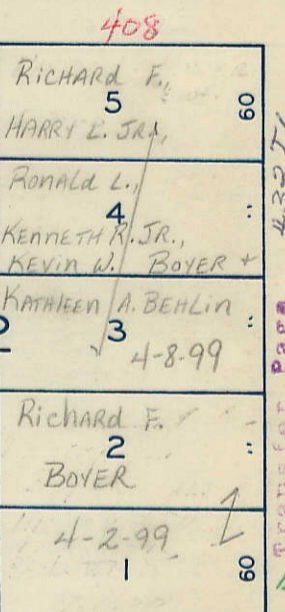 408
Richard F.,
5
60
Harry L. Jr.,
Ronald L.,
4
"
Kenneth R. Jr.,
Kevin W. Boyer +
Kathleen A. Behlin
3
"
4-8-99
Richard F.
2
"
Boyer
4-2-99
1
60
Transfer Page